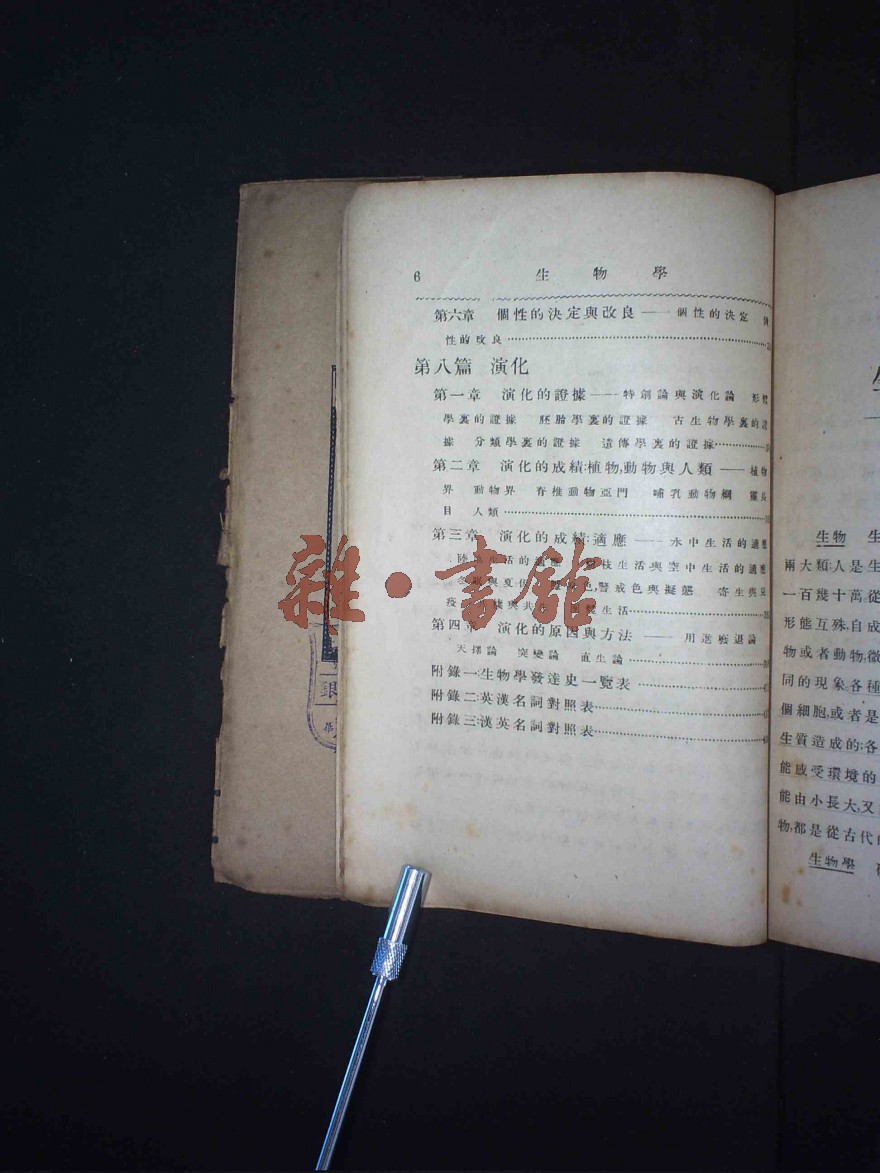 6 生物學
第六章 個性的決定與改良——個性的決定
性的改良
第八篇 演化
第一章 演化的證據——特創論與演化論 形
學裏的證據 胚胎學裏的證據 古生物學裏的證
據 分類學裏的證據 遺傳學裏的證據
第二章 演化的成績:植物,動物與人類——植物
界 動物界 脊椎動物亞門 哺乳動物綱 靈長
目 人類
第三章 演化的成績:適應——水中生活的適應
生活的適應 生活與空中生活的適應
與夏 色,警戒色與擬態 寄生與
疫 與共 生活
第四章 演化的原因與方法——用進廢退論
天擇論 突變論 直生論
附錄一:生物學發達史一覽表
附錄二:英漢名詞對照表
附錄三:漢英名詞對照表
雜·書館
銀
生物 生
兩大類:人是生
一百幾十萬從
形態互殊,自成
物或者動物,微
同的現象各種
個細胞,或者是
生質造成的:各
能感受環境的
能由小長大,又
物,都是從古代
生物學